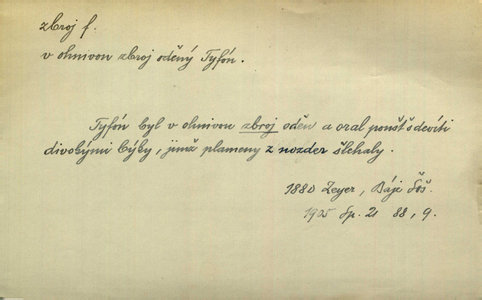 zbroj f.
v ohnivou zbroj oděný Tyfón.
Tyfón byl v ohnivou zbroj oděn a oral poušť s devíti
divokými býky, jimž plameny z nozder šlehaly.
1880 Zeyer, Báje Šoš.
1905 Sp. 21 88, 9.